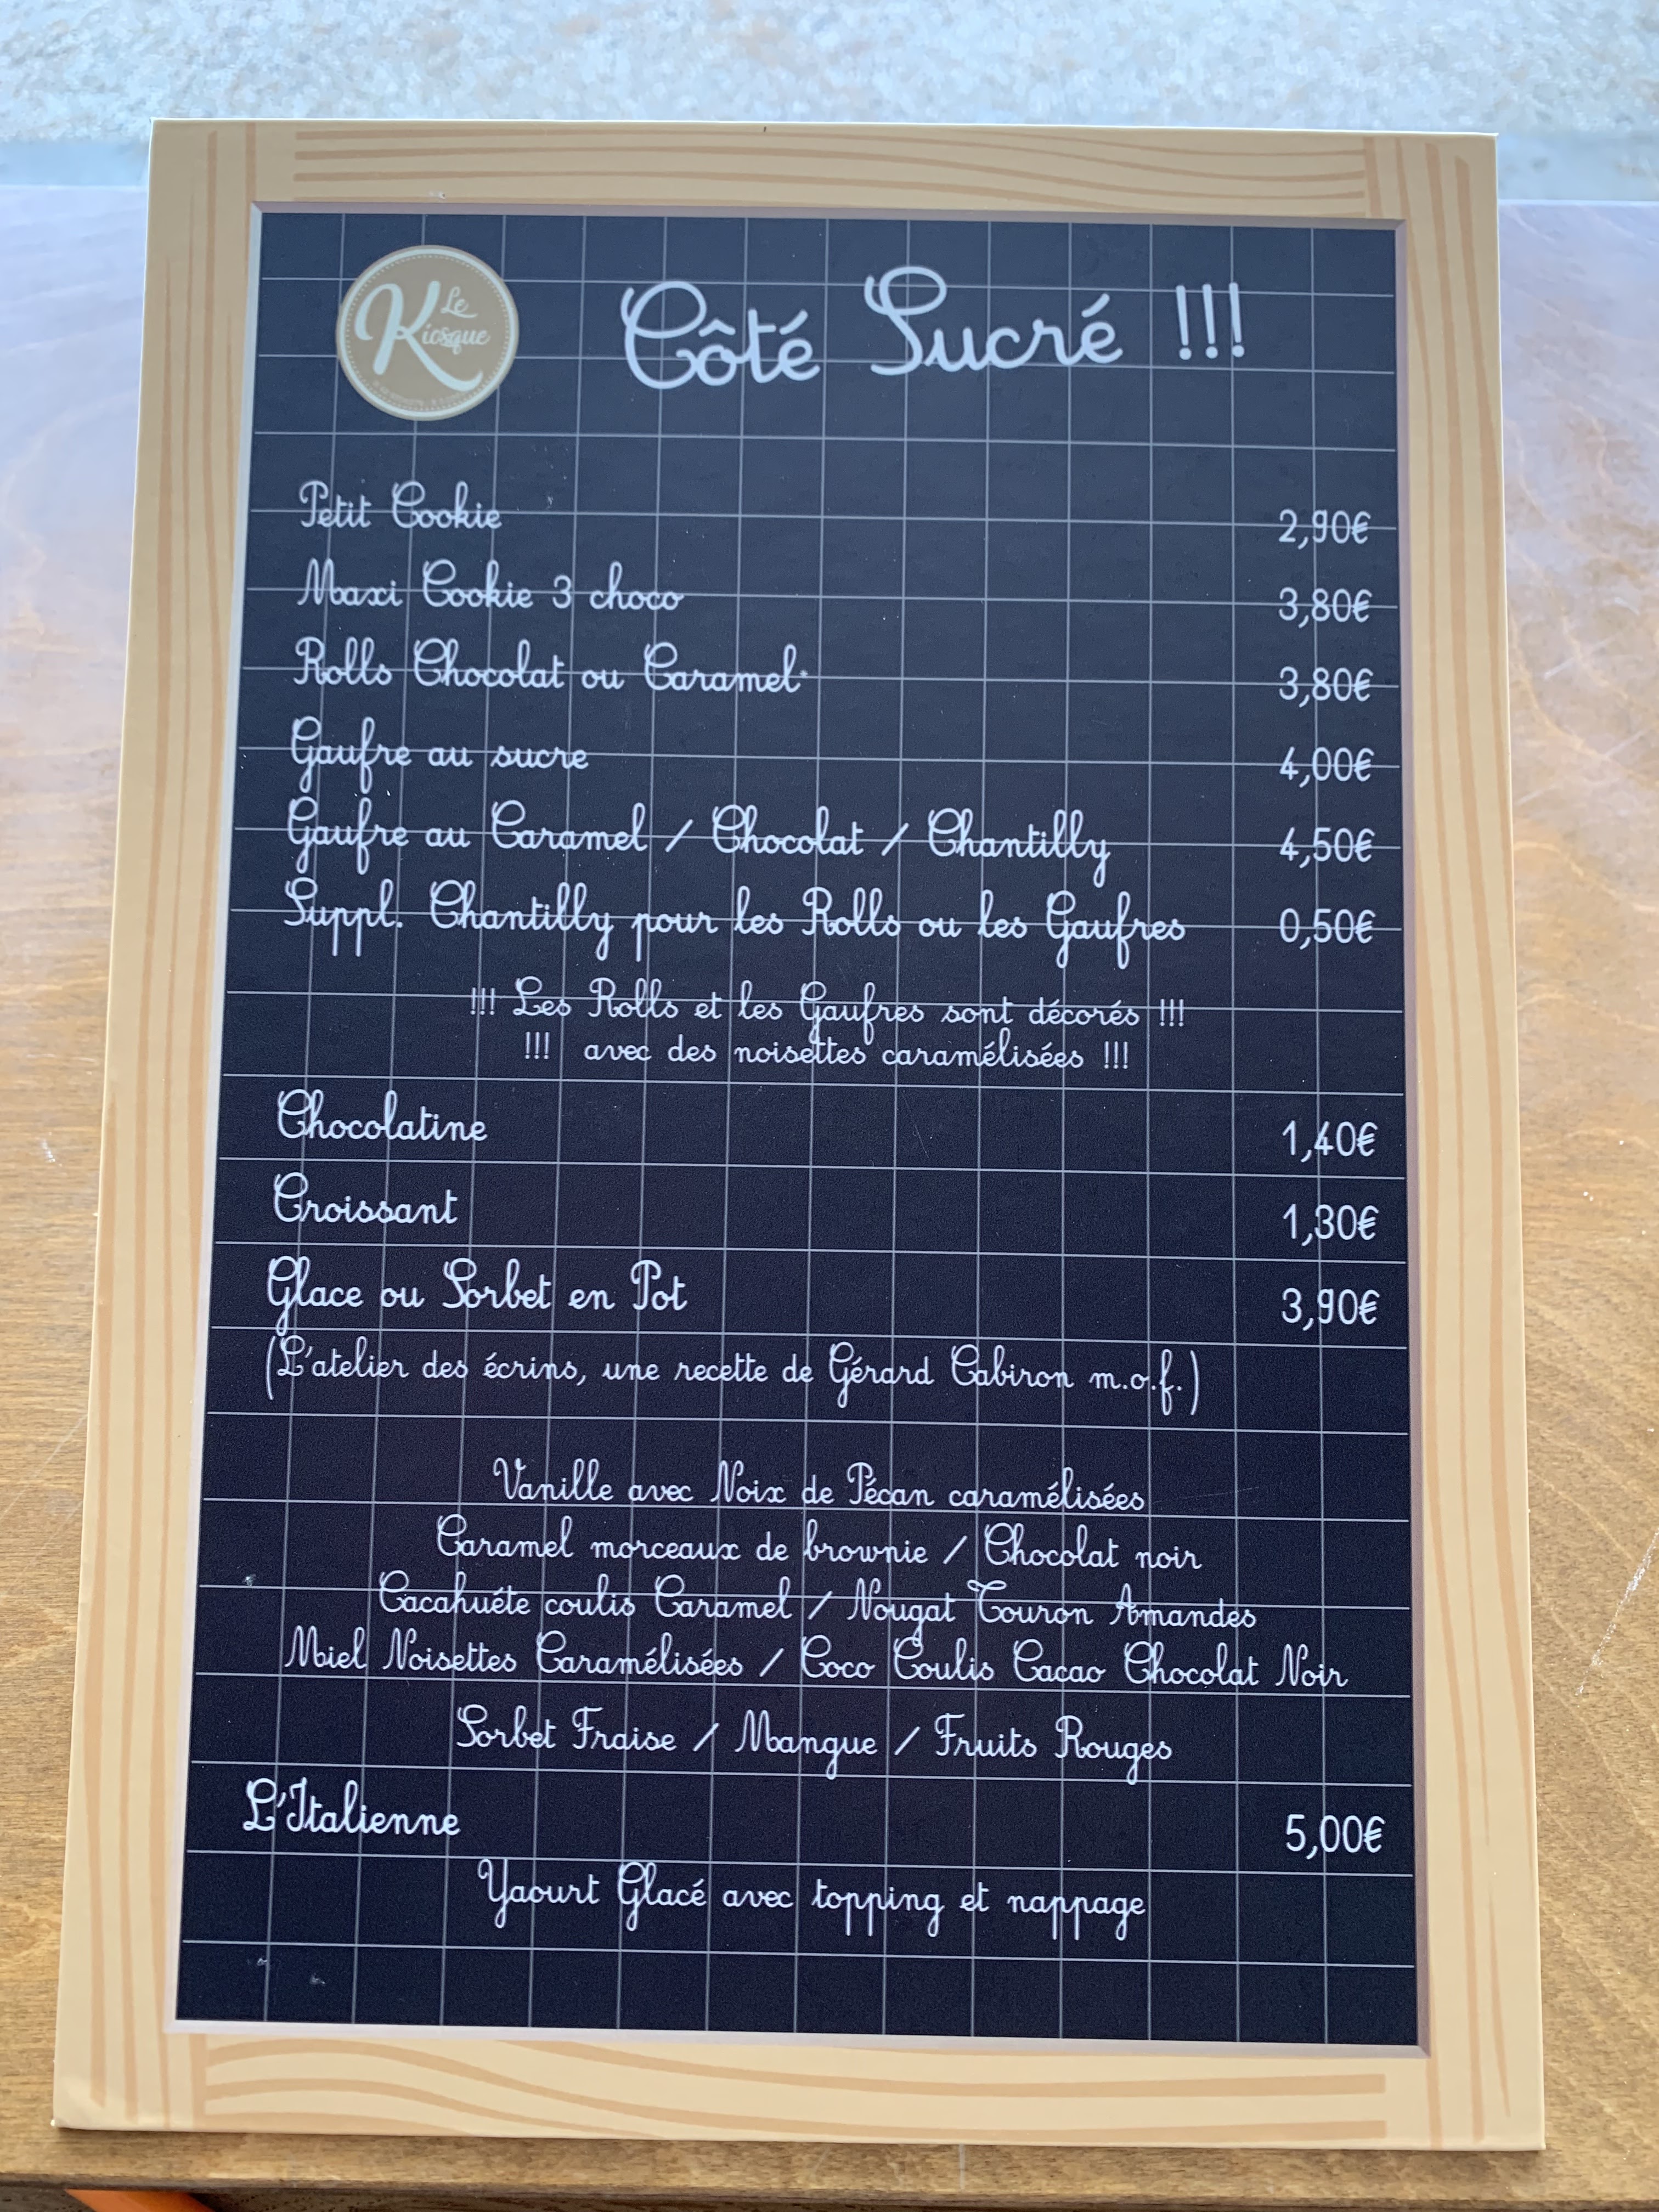 Le Kiosque
Côté Sucré !!!
Petit Cookie 2,90€
Maxi Cookie 3 choco 3,80€
Rolls Chocolat ou Caramel* 3,80€
Gaufre au sucre 4,00€
Gaufre au Caramel / Chocolat / Chantilly 4,50€
Suppl. Chantilly pour les Rolls ou les Gaufres 0,50€
!!! Les Rolls et les Gaufres sont décorés !!!
!!! avec des noisettes caramélisées !!!
Chocolatine 1,40€
Croissant 1,30€
Glace ou Sorbet en Pot 3,90€
(L'atelier des écrins, une recette de Gérard Cabiron m.o.f.)
Vanille avec Noix de Pécan caramélisées
Caramel morceaux de brownie / Chocolat noir
Cacahuéte coulis Caramel / Nougat Touron Amandes
Miel Noisettes Caramélisées / Coco Coulis Cacao Chocolat Noir
Sorbet Fraise / Mangue / Fruits Rouges
L'Italienne 5,00€
Yaourt Glacé avec topping et nappage